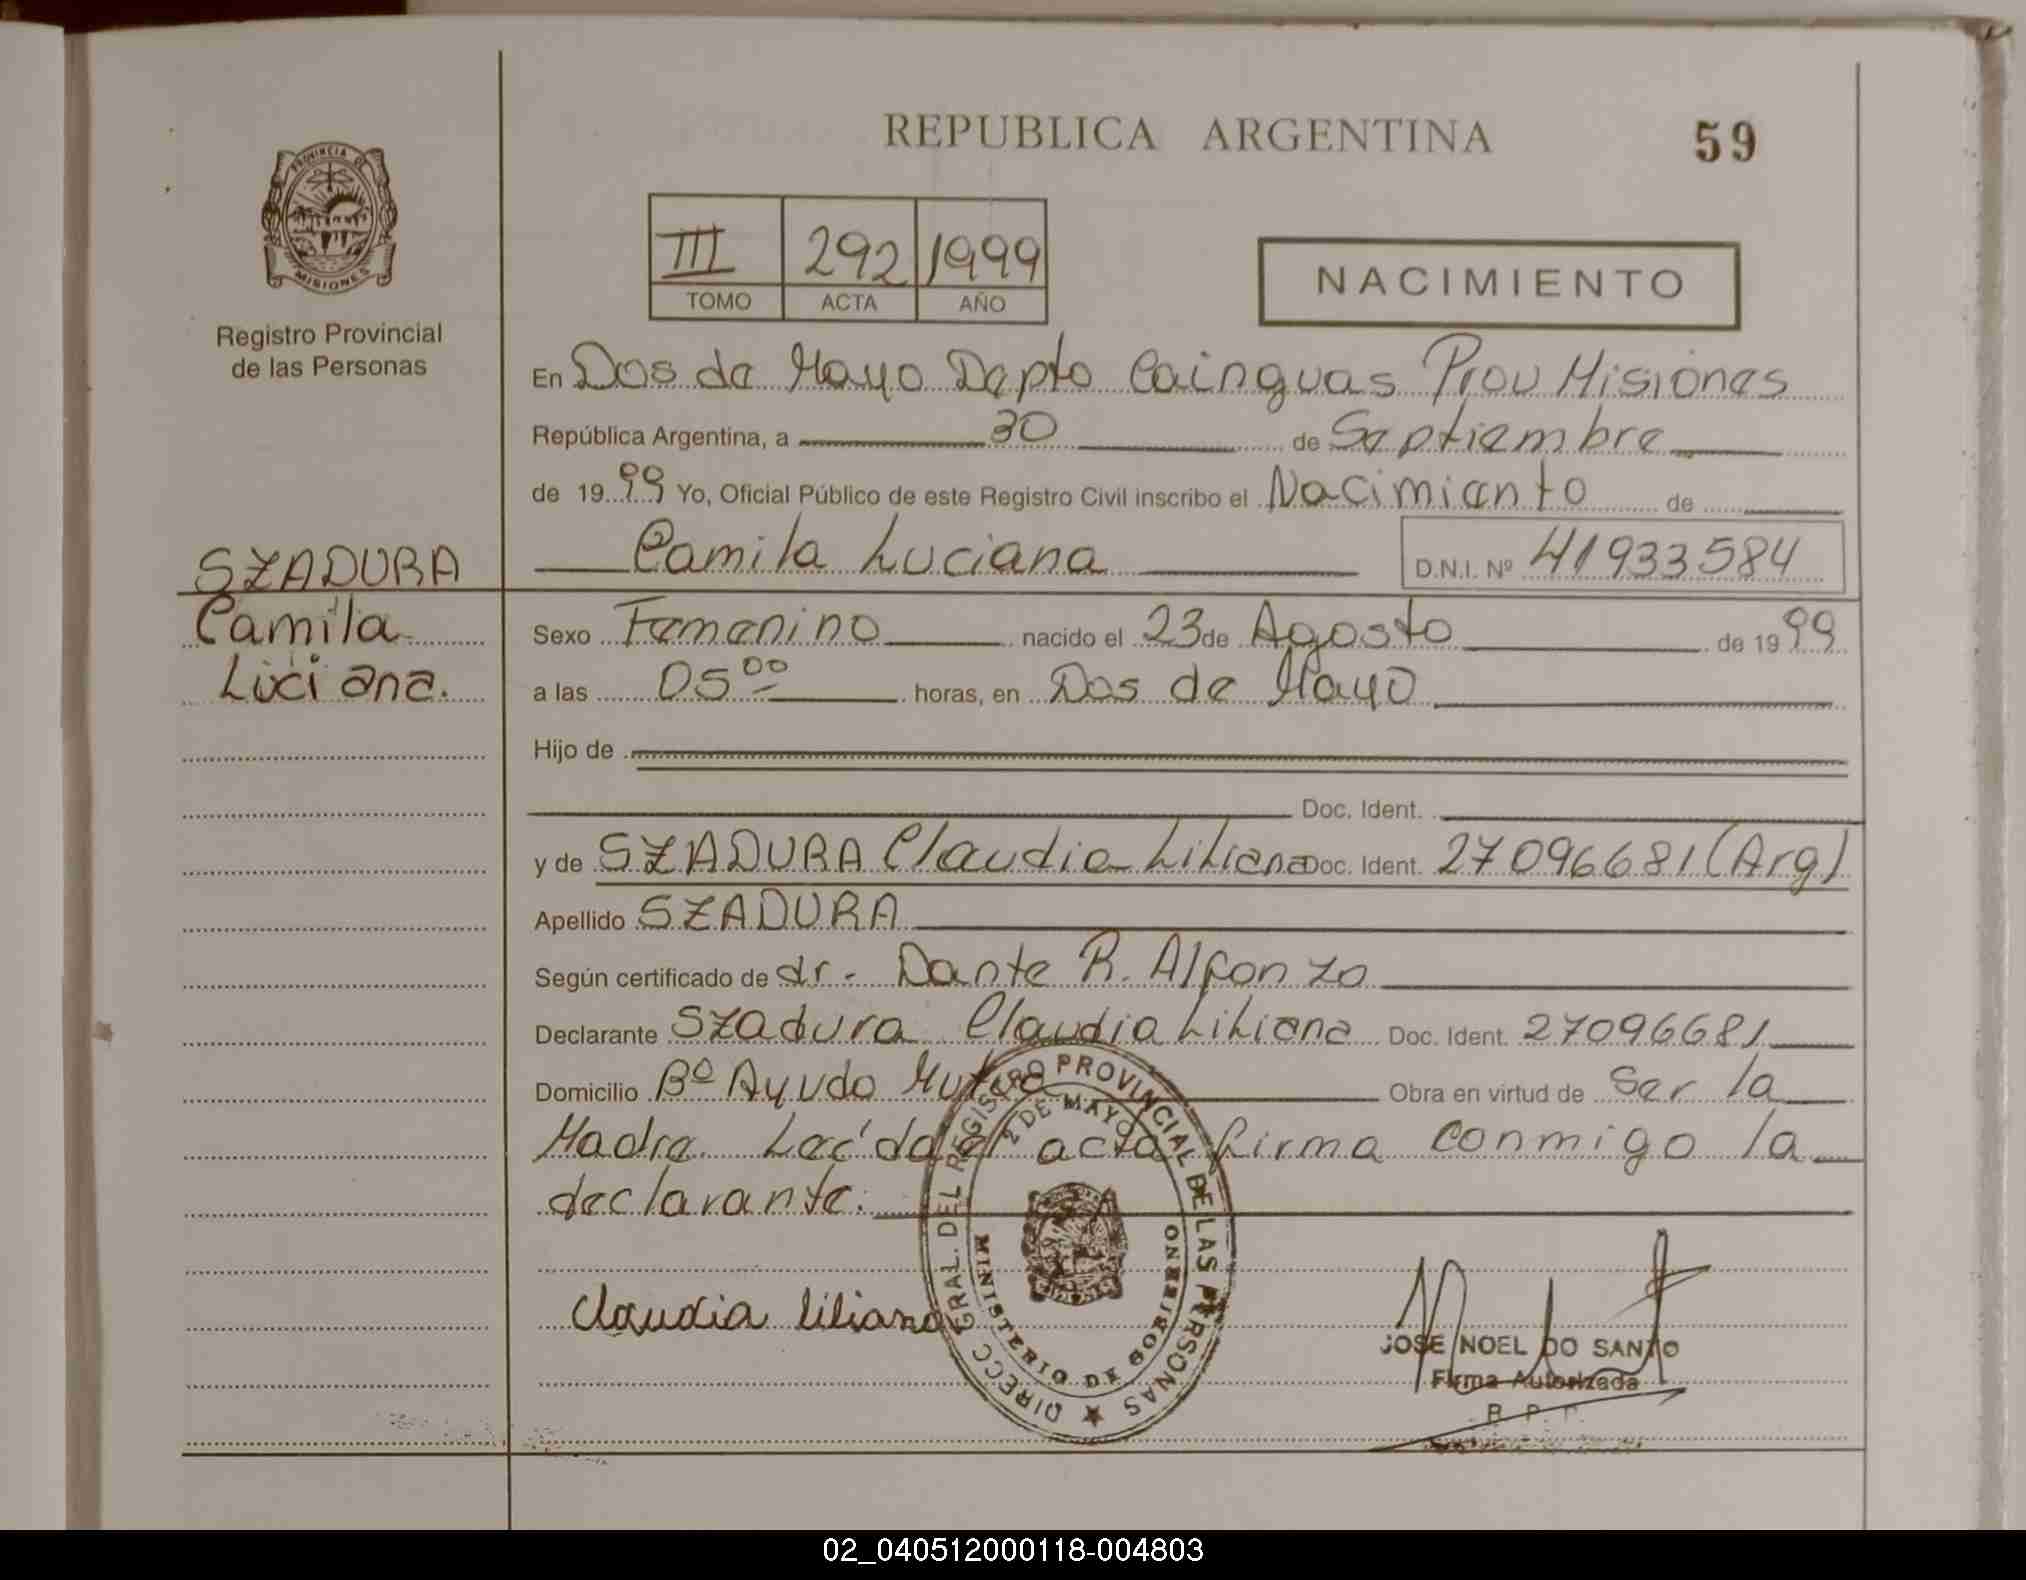 REPUBLICA ARGENTINA
59
PROVINCIA DE
MISIONES
Registro Provincial
de las Personas
III 292 1999
TOMO ACTA AÑO
NACIMIENTO
En Dos de Mayo Depto Cainguas Prov Misiones
República Argentina, a 30 de Septiembre
de 1999 Yo, Oficial Público de este Registro Civil inscribo el Nacimiento de
SZADURA
Camila Luciana D.N.I. Nº 41933584
Camila
Luciana.
Sexo Femenino nacido el 23 de Agosto de 1999
a las 05 00 horas, en Dos de Mayo
Hijo de
Doc. Ident.
y de SZADURA Claudia Liliana Doc. Ident. 27096681 (Arg)
Apellido SZADURA
Según certificado de dr. Dante R. Alfonzo
Declarante Szadura Claudia Liliana Doc. Ident. 27096681
Domicilio Bº Ayudo Mutua Obra en virtud de Ser la
Madre. Leída el acta firma conmigo la
declarante.
DIRECC GRAL. DEL REGISTRO PROVINCIAL DE LAS PERSONAS
2 DE MAYO
MINISTERIO DE GOBIERNO
Claudia liliana
JOSE NOEL DO SANTO
Firma Autorizada
R. P. P.
02_040512000118-004803